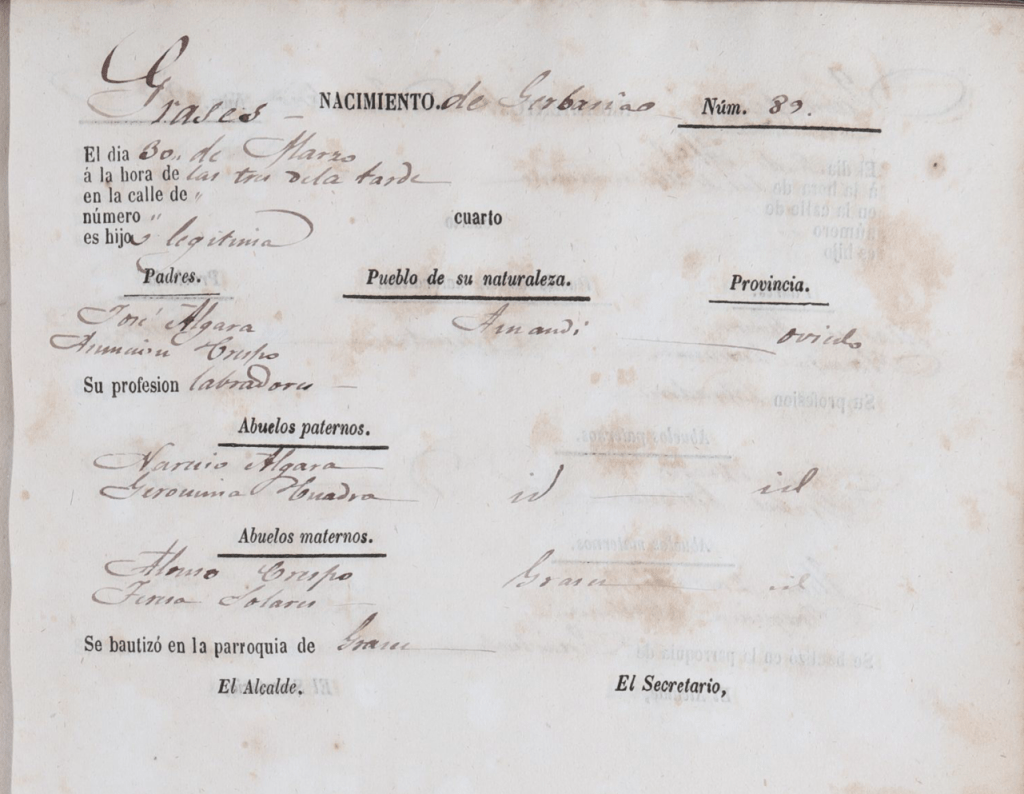 Grases — NACIMIENTO. de Gerbasiao Núm. 89.
El dia 30,, de Marzo
á la hora de las tres dela tarde
en la calle de "
número " cuarto
es hijo legitima
Padres. Pueblo de su naturaleza. Provincia.
José Algara Amandi — oviedo
Asuncion Crespo
Su profesion labradores —
Abuelos paternos.
Narciso Algara
Geronima Cuadra id — id
Abuelos maternos.
Alonso Crespo Grases id
Teresa Solares —
Se bautizó en la parroquia de Grases —
El Alcalde. El Secretario,